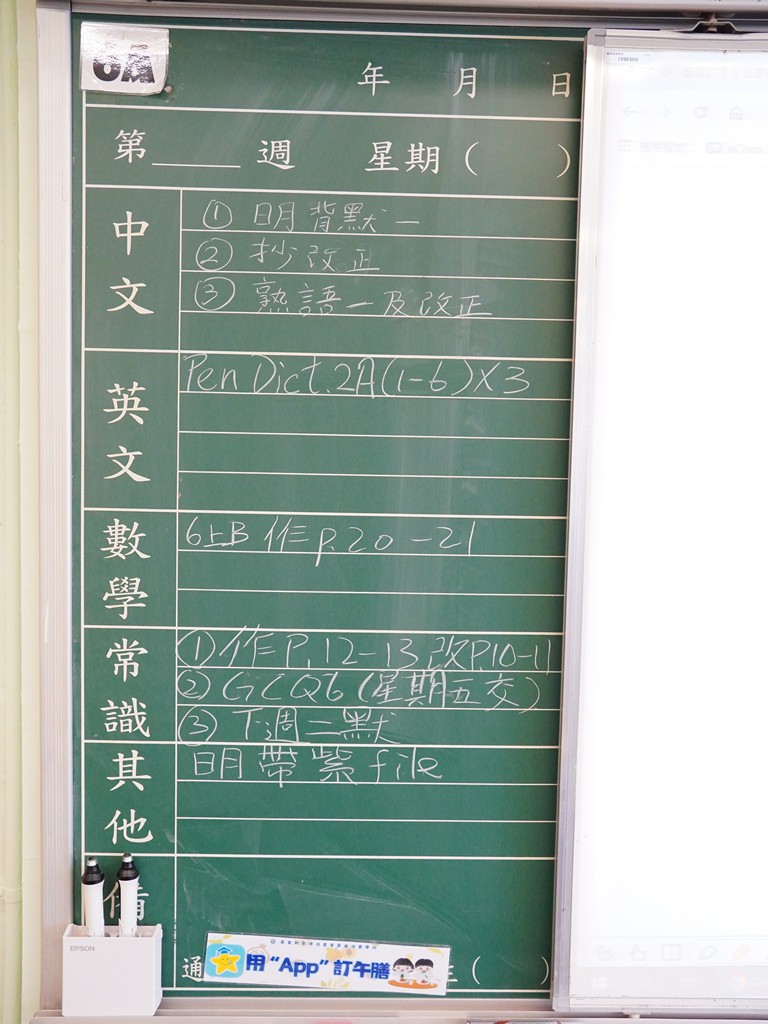 6A
年 月 日
第____週 星期( )
中文
① 明背默一
② 抄改正
③ 熟語一及改正
英文
Pen Dict.2A(1-6)×3
數學
6上B 作p.20-21
常識
①作P.12-13,改P.10-11
② GCQ6(星期五交)
③ 下週二默
其他
明帶紫file
備
EPSON
通
用“App”訂午膳
( )